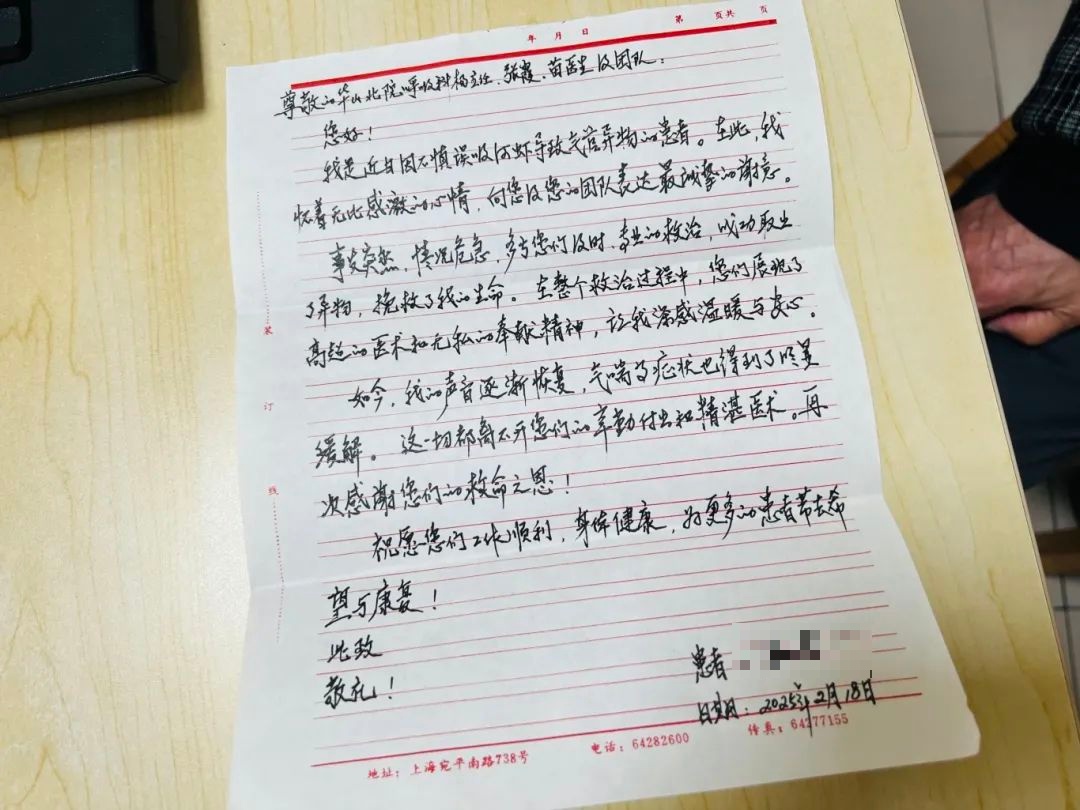 第 页共 页
年 月 日
尊敬的华山北院呼吸科杨主任、张霞、苗医生及团队：
您好！
我是近日因不慎误吸河虾导致气管异物的患者。在此，我
怀着无比感激的心情，向您及您的团队表达最诚挚的谢意。
事发突然，情况危急，多亏您们及时、专业的救治，成功取出
了异物，挽救了我的生命。在整个救治过程中，您们展现了
高超的医术和无私的奉献精神，让我深感温暖与安心。
如今，我的声音逐渐恢复，气喘等症状也得到了明显
缓解。这一切都离不开您们的辛勤付出和精湛医术。再
次感谢您们的救命之恩！
祝愿您们工作顺利，身体健康，为更多的患者带去希
望与康复！
此致
敬礼！
患者
日期：2025年2月18日
装
订
线
地址：上海宛平南路738号 电话：64282600 传真：64277155